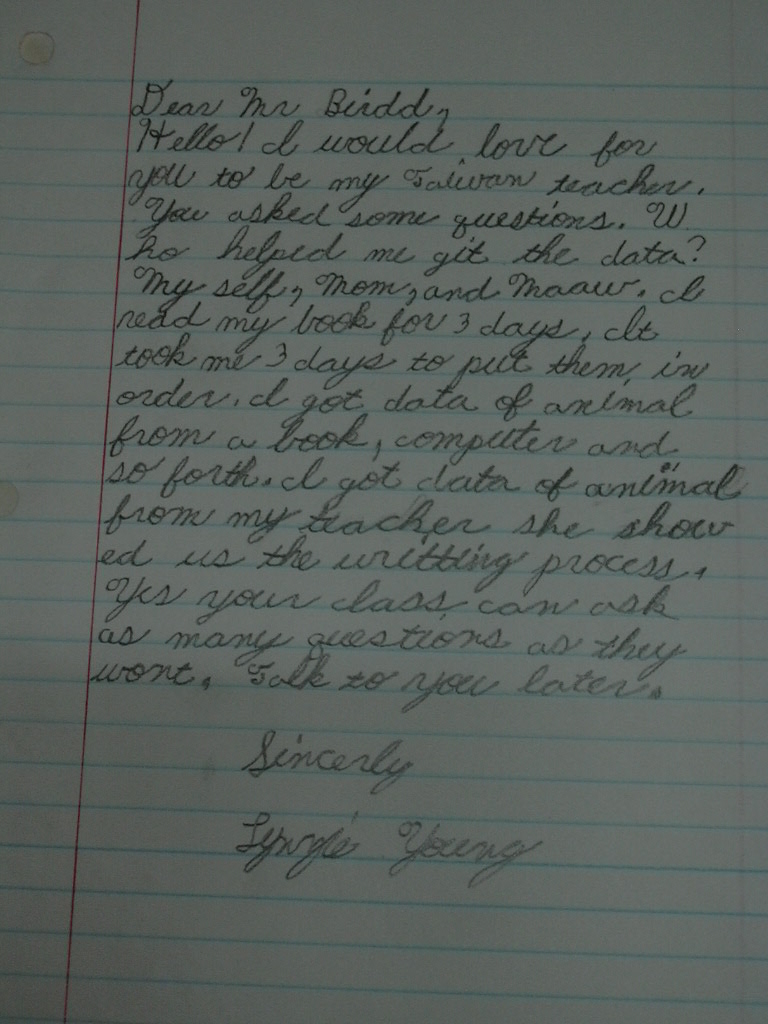 Dear Mr Birdd,
Hello! I would love for
you to be my Taiwan teacher.
You asked some questions. W
ho helped me git the data?
My self, Mom, and Maaw. I
read my book for 3 days. It
took me 3 days to put them in
order. I got data of animal
from a book, computer and
so forth. I got data of animal
from my teacher she show
ed us the writting process.
Yes your class can ask
as many questions as they
wont. Talk to you later.
Sincerly
Young